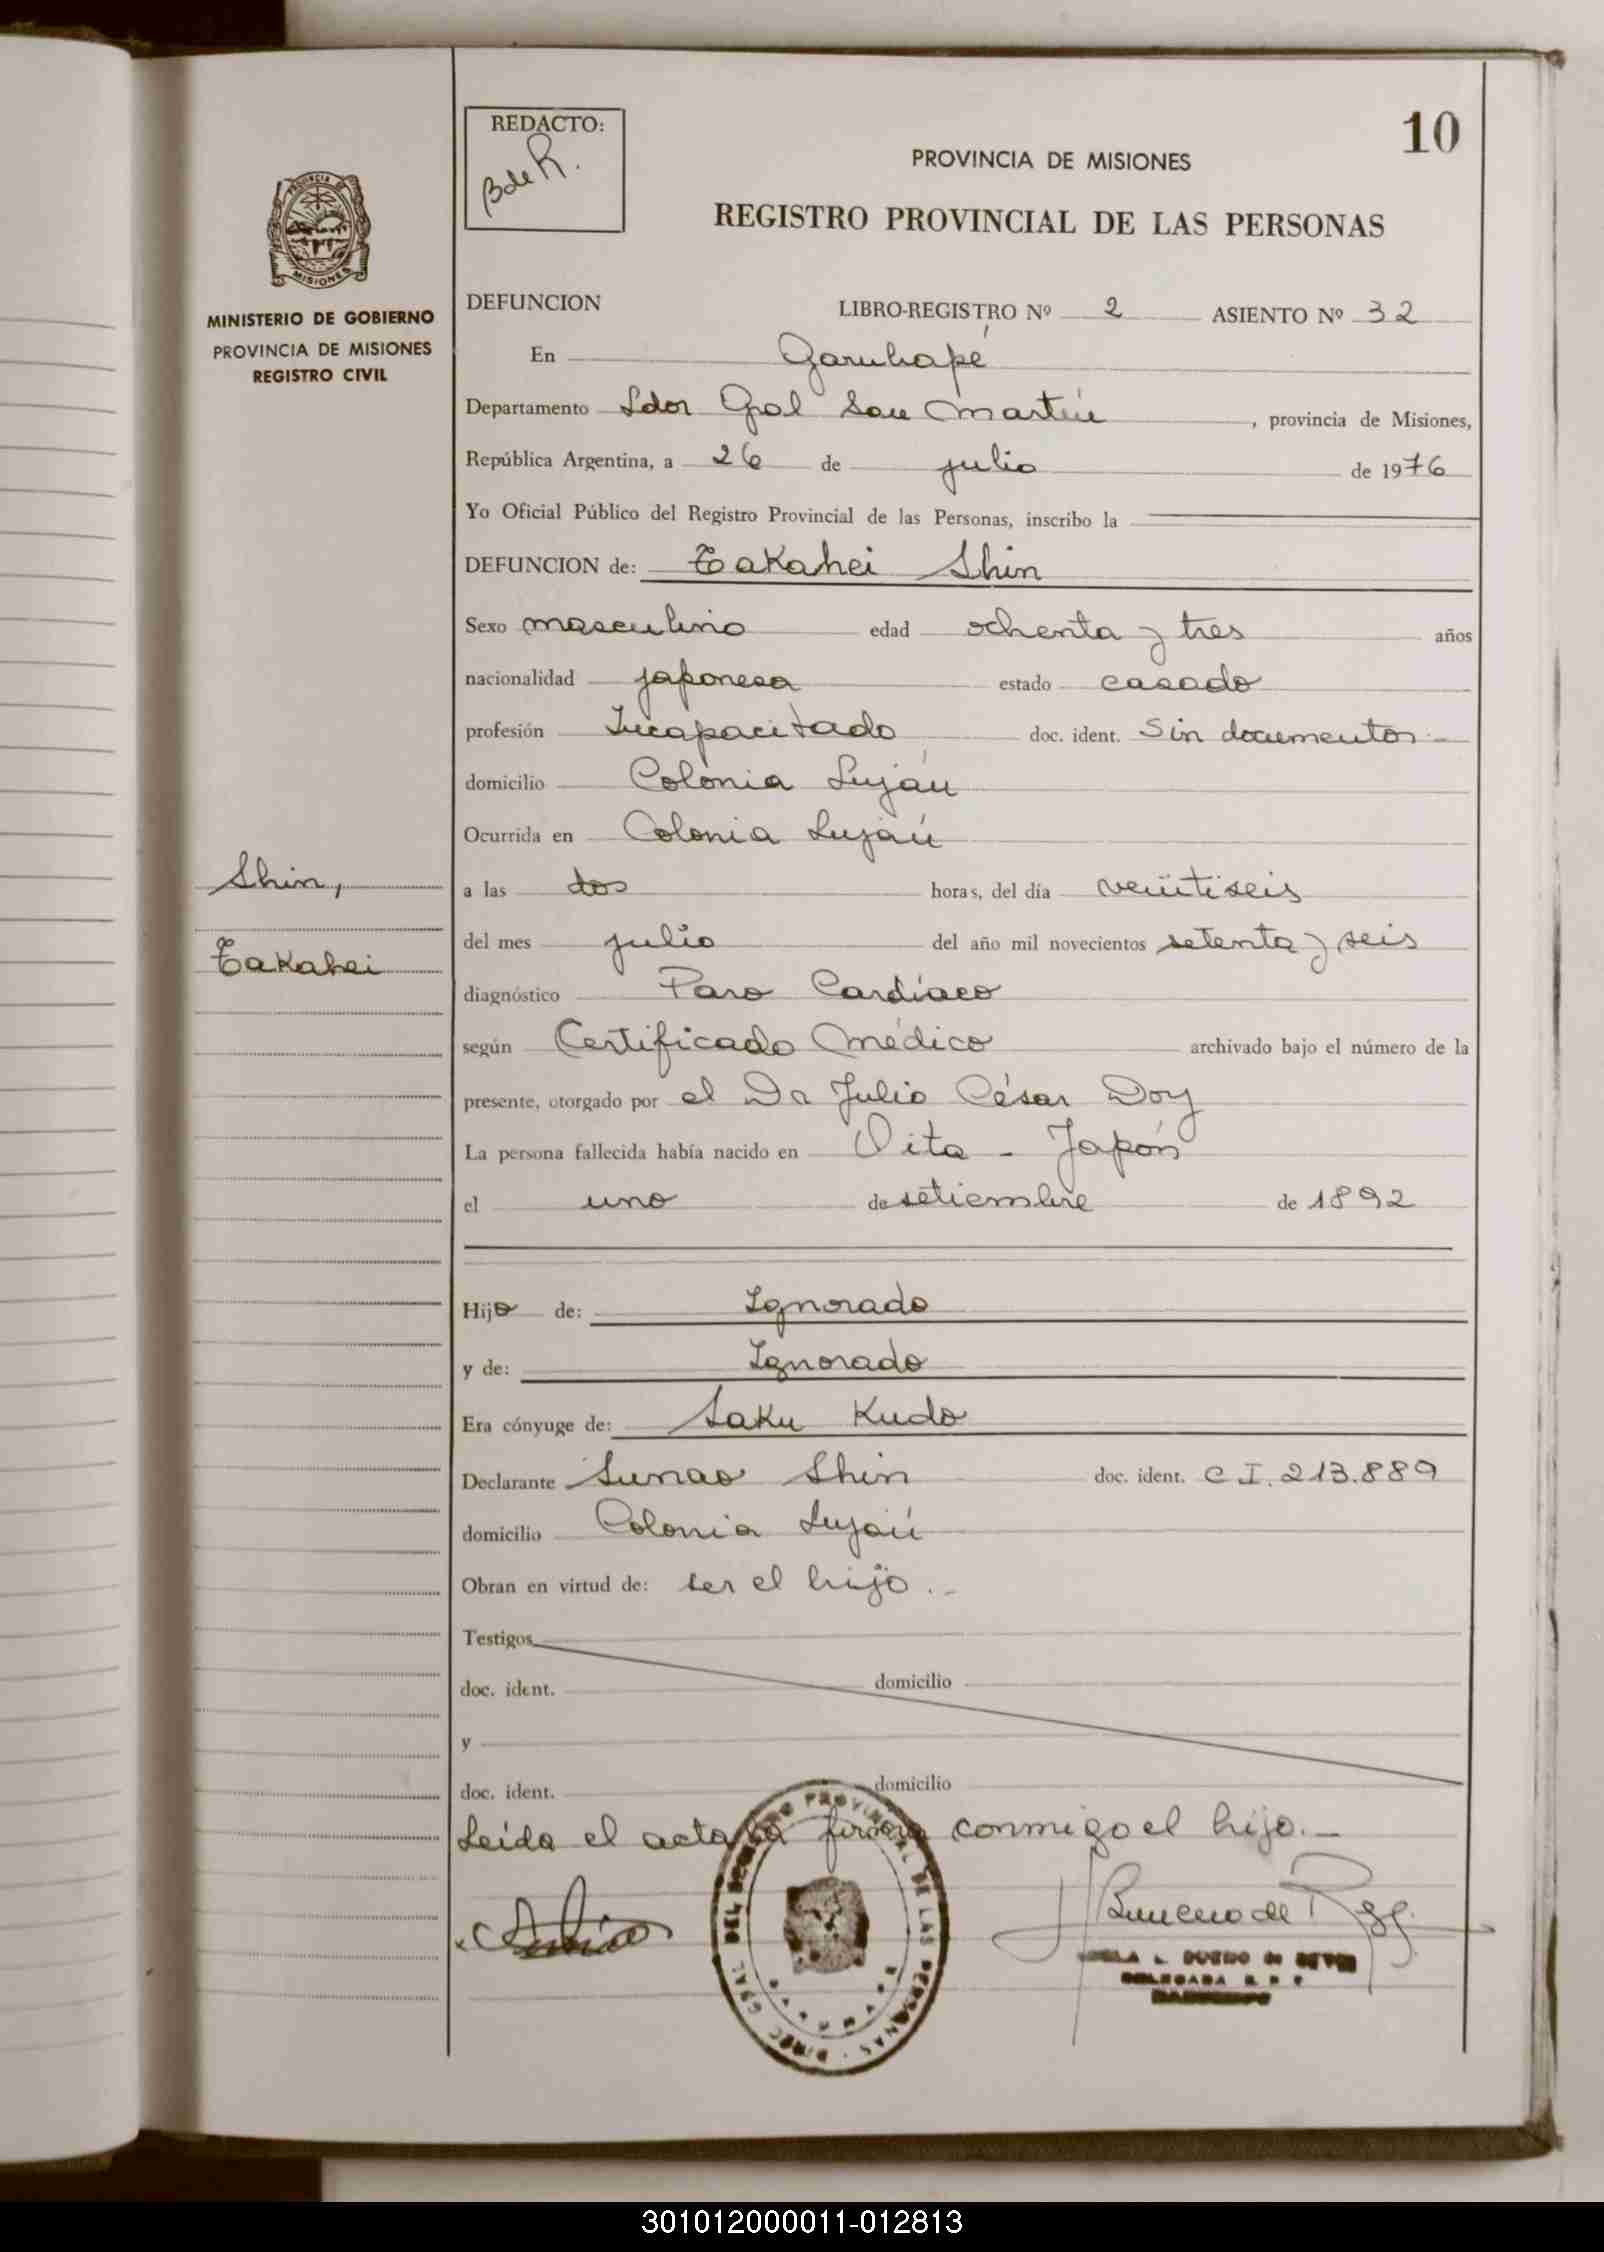 10
REDACTO:
B de R.
PROVINCIA DE MISIONES
REGISTRO PROVINCIAL DE LAS PERSONAS
PROVINCIA DE
MISIONES
MINISTERIO DE GOBIERNO
PROVINCIA DE MISIONES
REGISTRO CIVIL
DEFUNCION LIBRO-REGISTRO Nº 2 ASIENTO Nº 32
En Garuhapé
Departamento Ldor Gral San Martín, provincia de Misiones,
República Argentina, a 26 de julio de 1976
Yo Oficial Público del Registro Provincial de las Personas, inscribo la
DEFUNCION de: Takahei Shin
Sexo masculino edad ochenta y tres años
nacionalidad japonesa estado casado
profesión Incapacitado doc. ident. Sin documentos.-
domicilio Colonia Luján
Ocurrida en Colonia Luján
Shin,
Takahei
a las dos horas, del día veintiseis
del mes julio del año mil novecientos setenta y seis
diagnóstico Paro Cardíaco
según Certificado Médico archivado bajo el número de la
presente, otorgado por el Dr Julio César Doy
La persona fallecida había nacido en Oita - Japón
el uno de setiembre de 1892
Hijo de: Ignorado
y de: Ignorado
Era cónyuge de: Saku Kudo
Declarante Sunao Shin doc. ident. C I. 213.889
domicilio Colonia Luján
Obran en virtud de: ser el hijo.-
Testigos
doc. ident. domicilio
y
doc. ident. domicilio
Leída el acta la firma conmigo el hijo.-
DIREC. GRAL. DEL REGISTRO PROVINCIAL DE LAS PERSONAS
DELEGADA R. P. P.
301012000011-012813